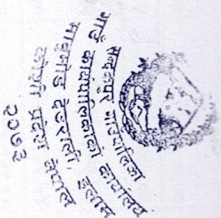 सन्दकपुर गाउँपालिका
गाउँ कार्यपालिकाको कार्यालय
माबुमोड देउराली, इलाम
कोशी प्रदेश, नेपाल
२०७३